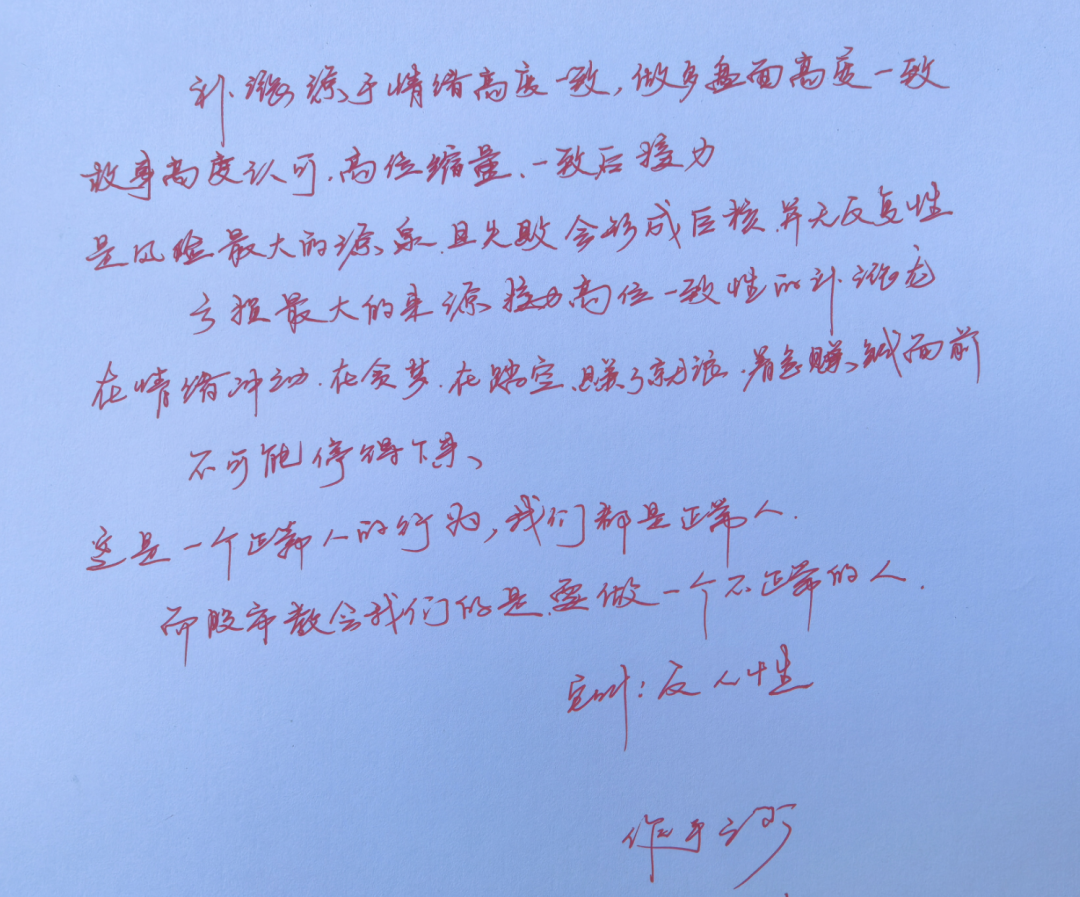 补涨源于情绪高度一致,做多盘面高度一致
故事高度认可、高位缩量、一致后接力
是风险最大的源泉、且失败会形成巨核、并无反复性
亏损最大的来源、接力高位一致性的补涨龙
在情绪冲动、在贪婪、在踏空、赚了就浪、着急赚钱面前
不可能停得下来、
这是一个正常人的行为,我们都是正常人.
而股市教会我们的是要做一个不正常的人.
它叫:反人性
作手